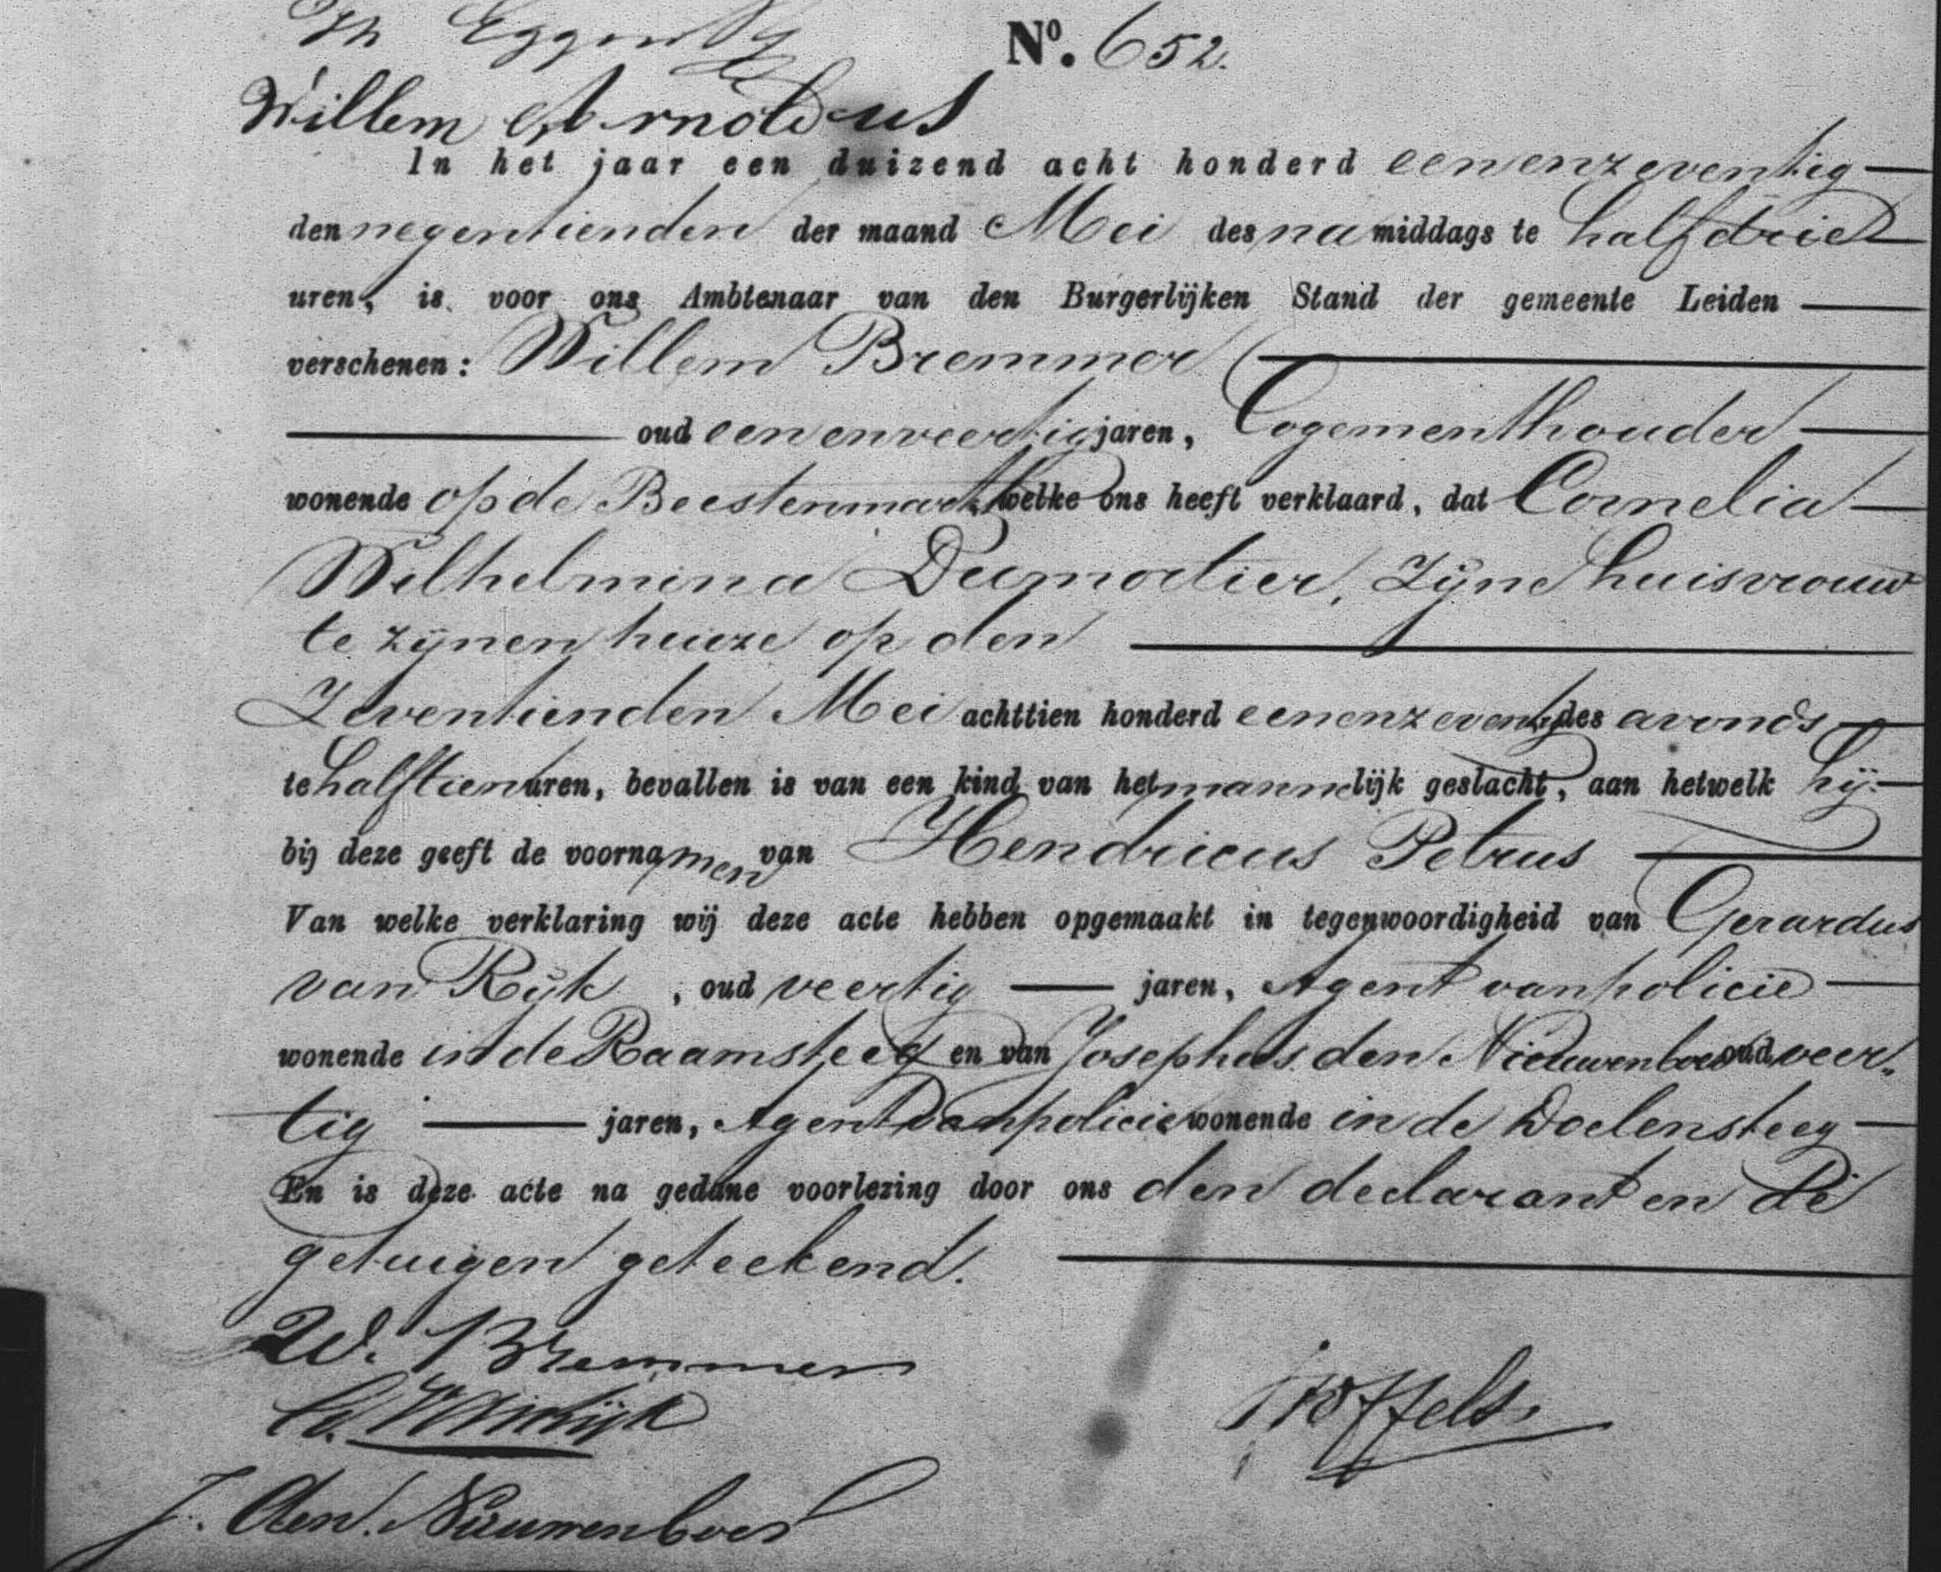 No. 652.
Willem Arnoldus
In het jaar een duizend acht honderd eenenzeventig
den negentienden der maand Mei des namiddags te half drie
uren, is voor ons Ambtenaar van den Burgerlijken Stand der gemeente Leiden
verschenen: Willem Bremmer
oud eenenveertig jaren, Logementhouder
wonende op de Beestenmarkt welke ons heeft verklaard, dat Cornelia
Wilhelmina Dumortier, zijne huisvrouw
te zijnen huize op den
Zeventienden Mei achttien honderd eenenzeventig des avonds
te half tien uren, bevallen is van een kind van het mannelijk geslacht, aan hetwelk hij
bij deze geeft de voornamen van Hendricus Petrus
Van welke verklaring wij deze acte hebben opgemaakt in tegenwoordigheid van Gerardus
van Rijk, oud veertig jaren, Agent van policie
wonende in de Raamsteeg en van Josephus den Nieuwenboer oud veer„
tig jaren, Agent van policie wonende in de Doelensteeg
En is deze acte na gedane voorlezing door ons den declarant en de
getuigen geteekend.
W. Bremmer
J. den Nieuwenboer